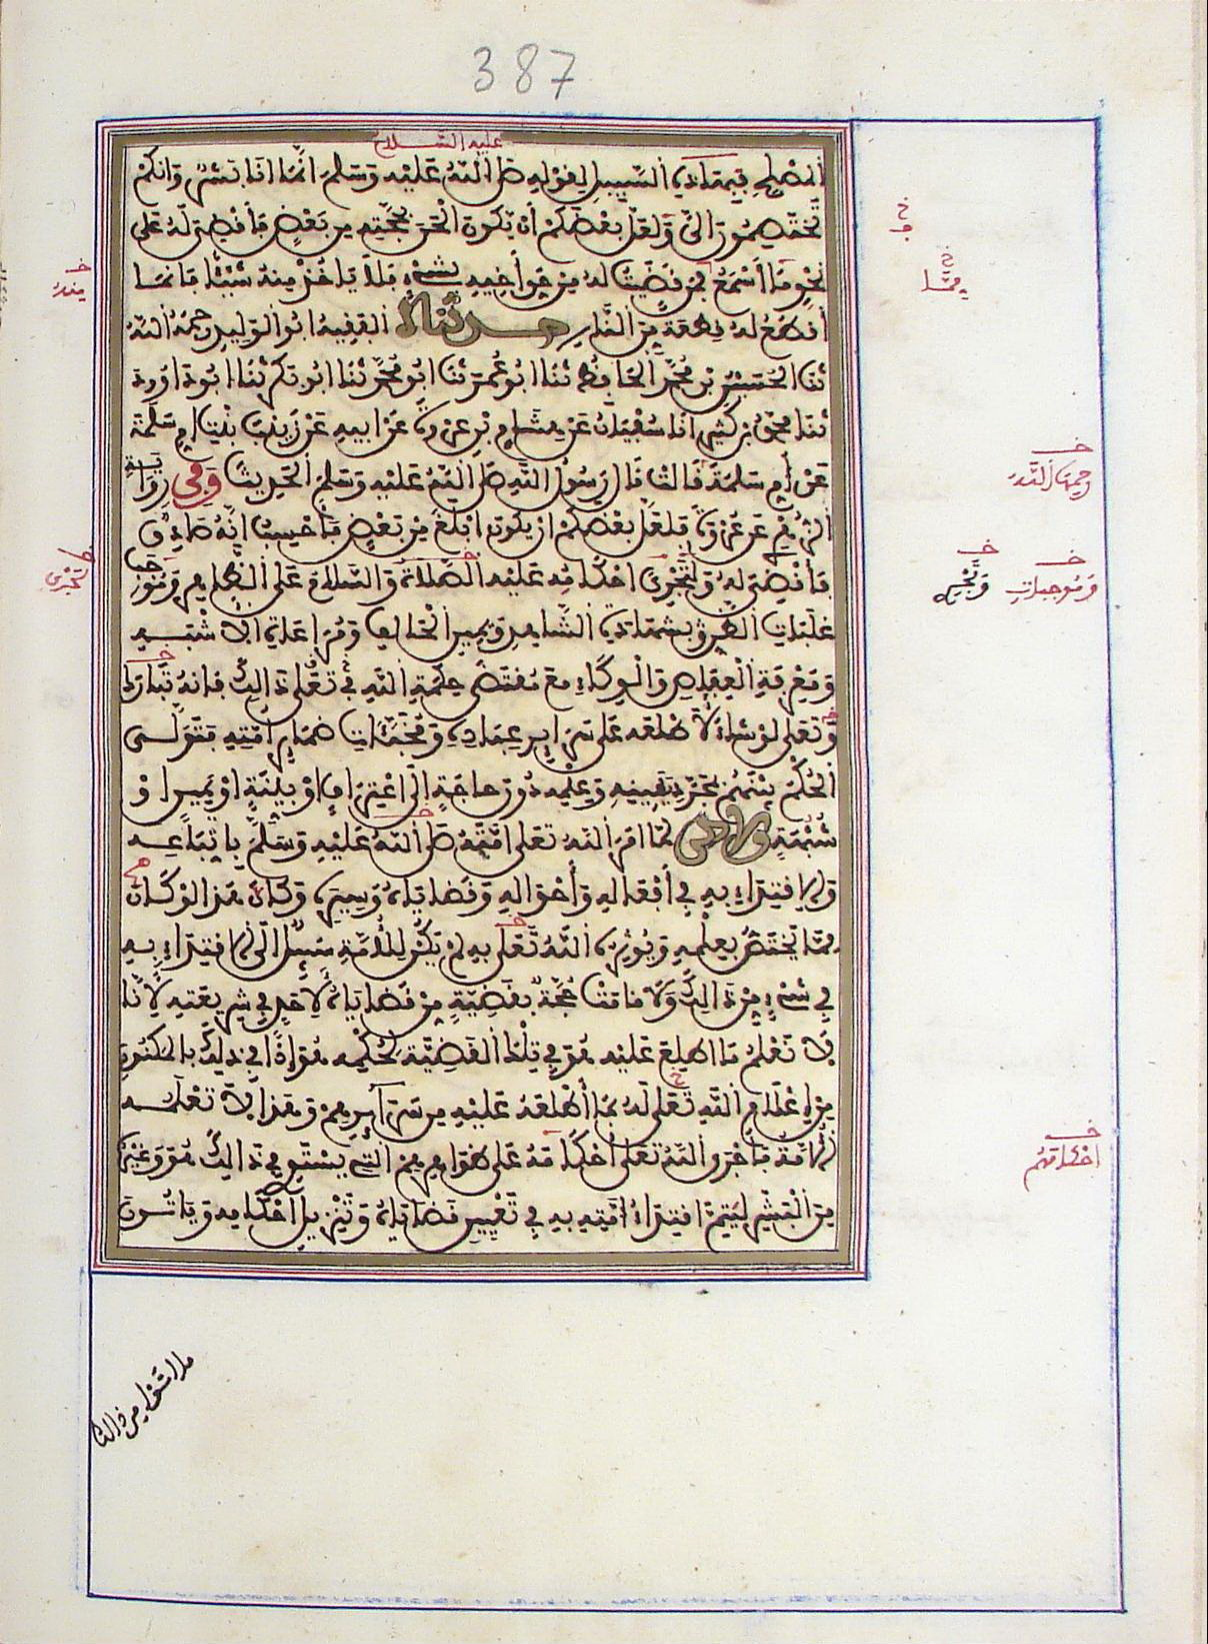 387
عليه السلام
المصلح فيما دي السبيل لقوله صلى الله عليه وسلم انما انا بشر وانكم
تختصمون الي ولعل بعضكم ان يكون الحن بحجته من بعض فأقضي له على
نحو مما اسمع فمن قضيت له من حق أخيه بشيء فلا ياخذ منه شيئا فانما
أقطع له قطعة من النار حدثنا الفقيه ابو الوليد رحمه الله
ثنا الحسين بن محمد الحافظ ثنا ابو عمر ثنا ابو محمد ثنا ابو بكر ثنا ابو داوود
ثنا محمد بن كثير انا سفيان عن هشام بن عروة عن ابيه عن زينب بنت ام سلمة
عن أم سلمة قالت قال رسول الله صلى الله عليه وسلم الحديث وفي رواية
الزهري عن عروة فلعل بعضكم ان يكون ابلغ من بعض فأحسب انه صادق
فأقضي له وتجري احكامه عليه الصلاة والسلام على الظاهر وموجب
غلبات الظن بشهادة الشاهد ويمين الحالف ومراعاة الاشبه
ومعرفة العفاص والوكاء مع مقتضى حكمة الله في ذالك فانه تبارك
وتعلى لو شاء لأطلعه على سراير عباده ومخبئات ضماير امته فتولى
الحكم بينهم بمجرد يقينه وعلمه دون حاجة الى اعتراف او بينة او يمين او
شبهة ولكن لما امر الله تعلى امته صلى الله عليه وسلم باتباعه
والاقتداء به في أفعاله وأحواله وقضاياه وسيره وكان هذا لو كان
مما يختص بعلمه ويوثره الله تعلى به لم يكن للأمة سبيل الى الاقتداء به
في شيء من ذالك ولا قامت حجة بقضية من قضاياه لأحد في شريعته لأنا
لا نعلم ما اطلع عليه هو في تلك القضية لحكمه هو اذا في ذلك بالمكنون
من إعلام الله تعلى له بما أطلعه عليه من سرايرهم وهذا لا تعلمه
الامة فأجرى الله تعلى أحكامه على ظواهرهم التي يستوي في ذالك هو وغيره
من البشر ليتم اقتداء امته به في تعيين قضاياه وتنزيل احكامه وياتون
ما اتوا من ذالك
خ
خ
مما
خ
منه
خ
رحمة الله
خ
وموجبات
خ
وتجري
خ
احكامهم